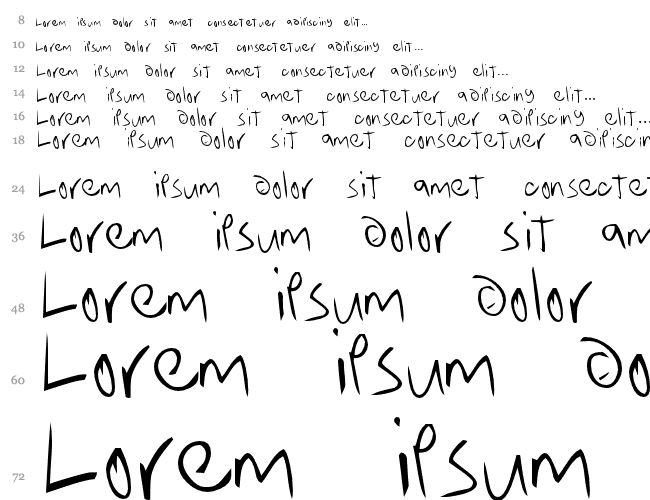 8 Lorem ipsum dolor sit amet consectetuer adipiscing elit...
10 Lorem ipsum dolor sit amet consectetuer adipiscing elit...
12 Lorem ipsum dolor sit amet consectetuer adipiscing elit...
14 Lorem ipsum dolor sit amet consectetuer adipiscing elit...
16 Lorem ipsum dolor sit amet consectetuer adipiscing elit...
18 Lorem ipsum dolor sit amet consectetuer adipiscin
24 Lorem ipsum dolor sit amet consectet
36 Lorem ipsum dolor sit am
48 Lorem ipsum dolor
60 Lorem ipsum do
72 Lorem ipsum